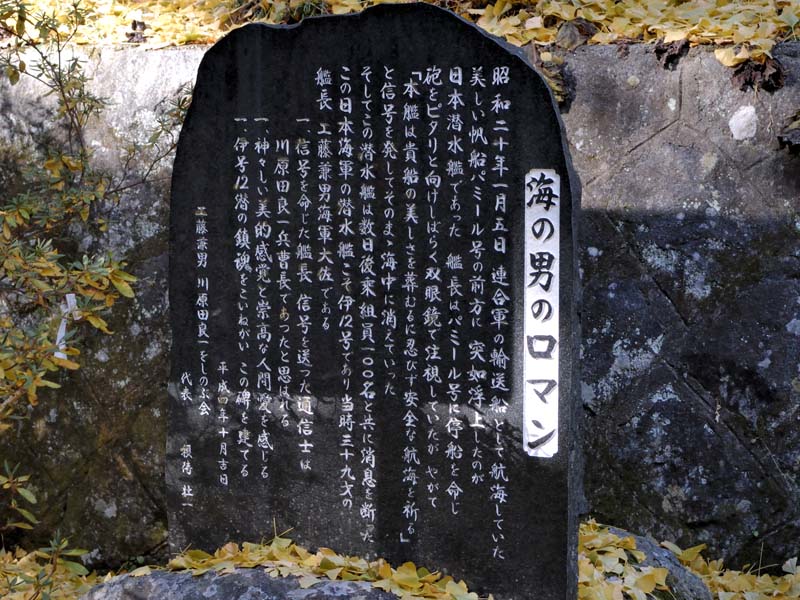 海の男のロマン
昭和二十年一月五日 連合軍の輸送船として航海していた
美しい帆船パミール号の前方に 突如浮上したのが
日本潜水艦であった 艦長はパミール号に停船を命じ
砲をピタリと向けしばらく双眼鏡で注視していたが やがて
「本艦は貴船の美しさを葬むるに忍びず安全な航海を祈る」
と信号を発してそのまゝ海中に消えていった
そしてこの潜水艦は数日後乗組員一〇〇名と共に消息を断った
この日本海軍の潜水艦こそ伊12号であり当時三十九才の
艦長 工藤兼男海軍大佐である
一、信号を命じた艦長 信号を送った通信士は
川原田良一兵曹長であったと思はれる
一、神々しい美的感覚と崇高な人間愛を感じる
一、伊号12潜の鎮魂をこいねがい この碑を建てる
平成四年十月吉日
工藤兼男 川原田良一をしのぶ会
代表